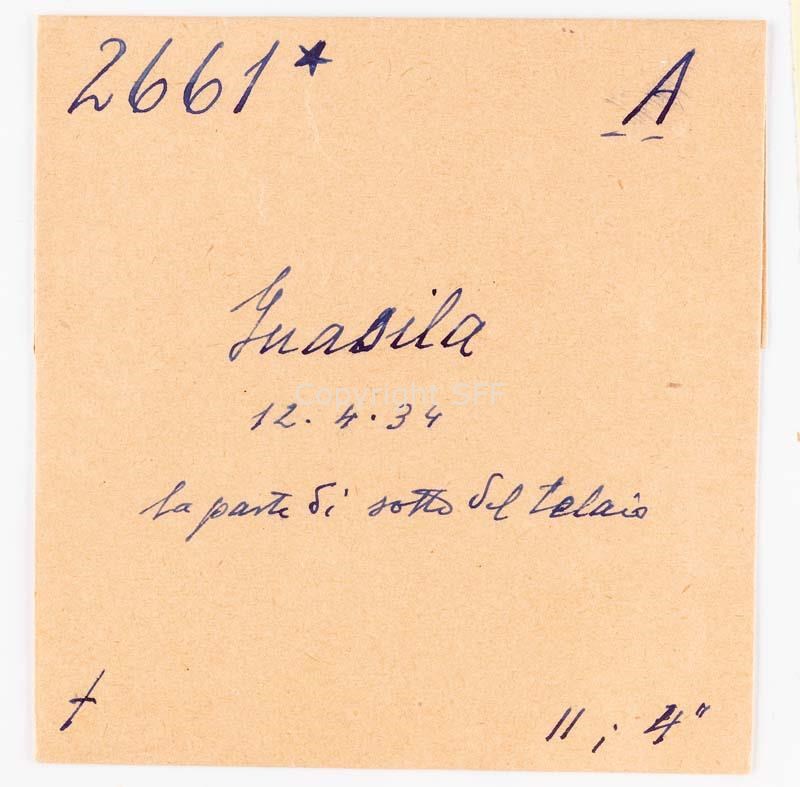 2661* A
Guasila
Copyright SFF
12.4.34
la parte di sotto del telaio
† 11; 4"